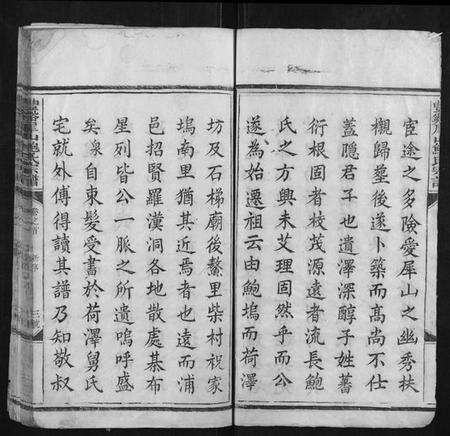 宦途之多險愛犀山之幽秀扶
櫬歸塟後遂卜築而高尚不仕
蓋隱君子也遺澤深醇子姓蕃
衍根固者枝茂源遠者流長鮑
氏之方興未艾理固然乎而公
遂為始遷祖云由鮑塢而荷澤
坊及石梯廟後鰲里柴村祝家
塢南里猶其近焉者也遠而浦
邑招賢羅漢洞各地散處棊布
星列皆公一脈之所遺嗚呼盛
矣泉自束髮受書於荷澤舅氏
宅就外傅得讀其譜乃知敬叔